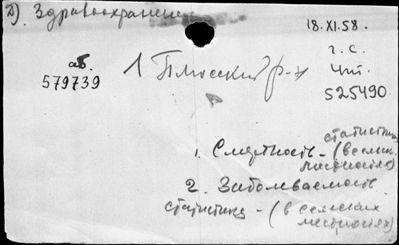 2). Здравоохранение
18.XI.58.
аб.
579739
1 Плюсский р-н
г.с.
Чит.
S25490
статистика
1. Смертность - (в сельск.
местностях)
2. Заболеваемость
статистика - (в сельских
местностях)